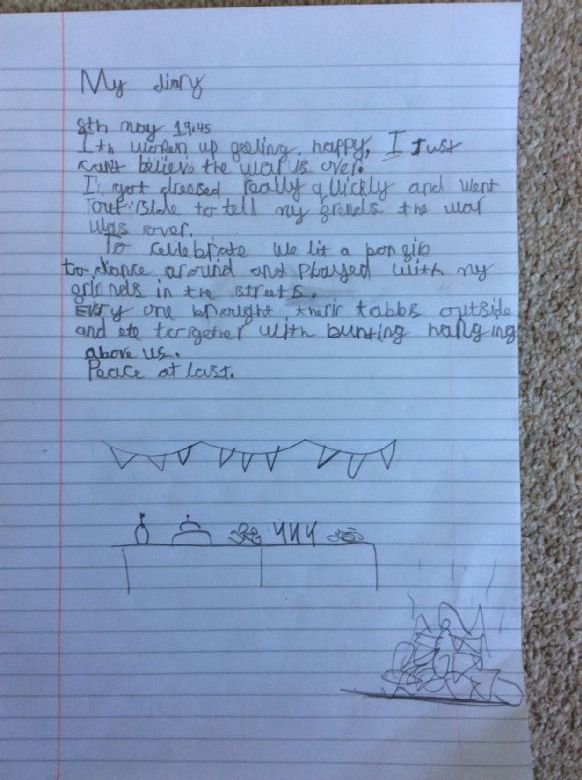 My diary
8th may 1945
I th worken up geeling happy, I Just
cant believe the war is over.
I got dressed really quickly and went
out side to tell my griends the war
was over.
To celebrate we lit a bongib
to dance around and played with my
griends in the streets.
Every one brought their tabbs outside
and ate torgether with bunting hanging
above us.
Peace at last.